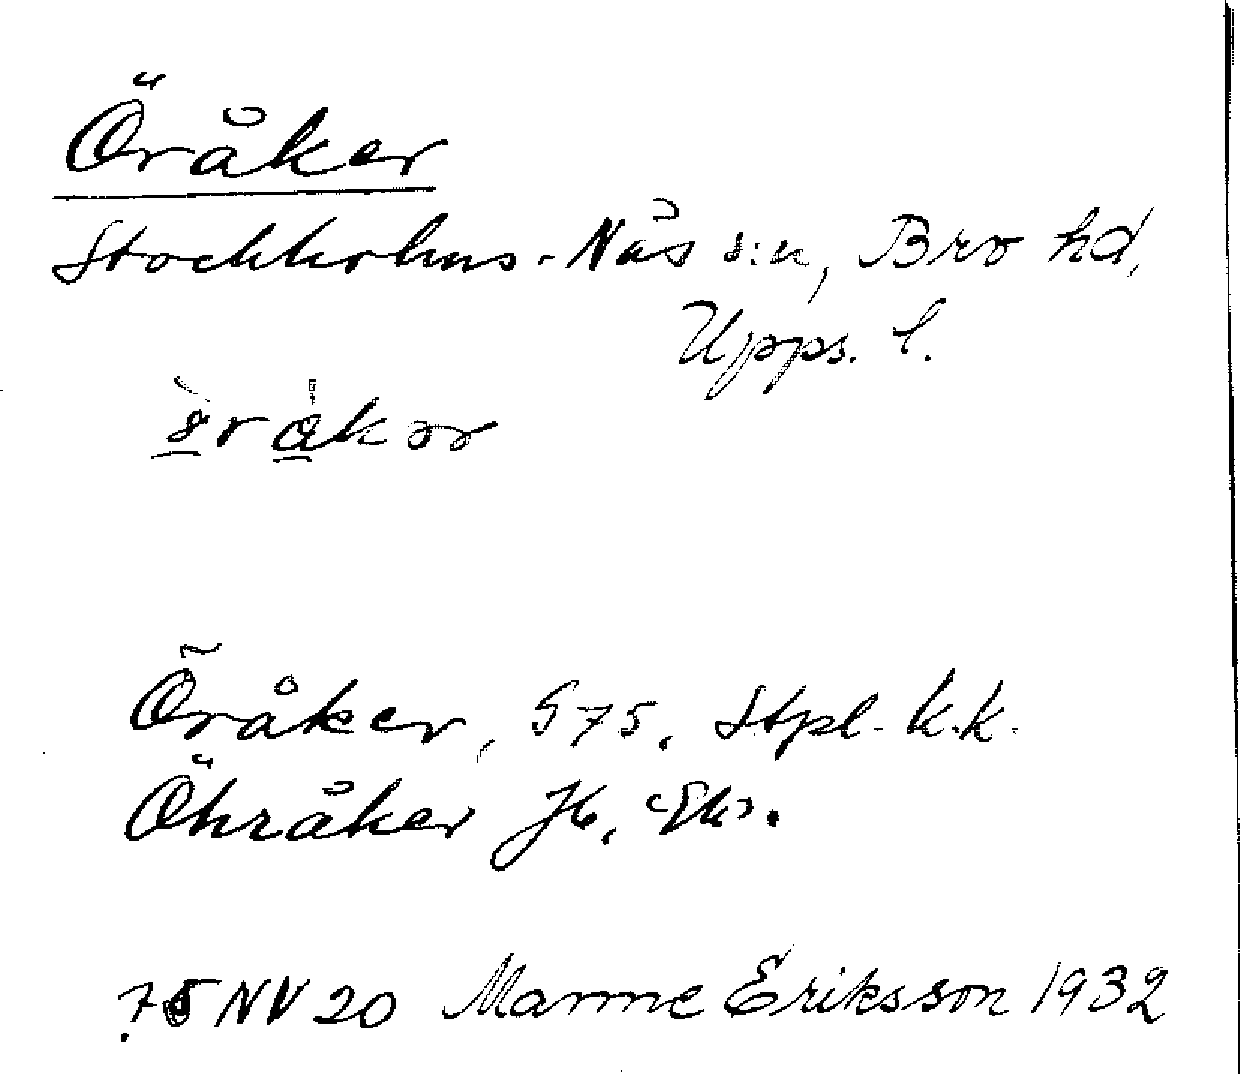 Öråker
Stockholms-Näs s:n, Bro hd,
Upps. l.
Öråker, G 75, Stpl. k.k.
Öhråker Jb, Ek.
75 NV 20 Manne Eriksson 1932